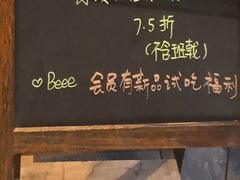 7.5折
(不含班戟)
♡Beee 会员有新品试吃福利